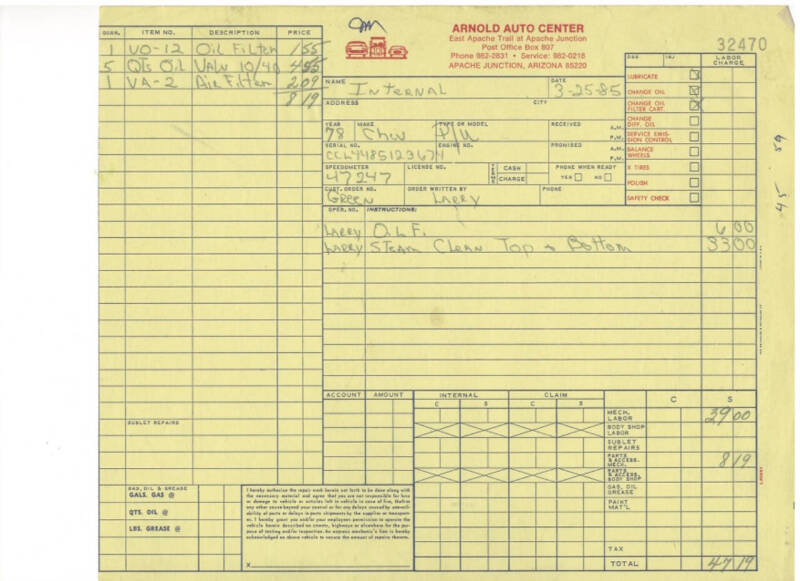 ARNOLD AUTO CENTER
East Apache Trail at Apache Junction
Post Office Box 807
Phone 982-2831 • Service: 982-0218
APACHE JUNCTION, ARIZONA 85220
32470
QUAN. ITEM NO. DESCRIPTION PRICE
1 VO-12 Oil Filter 1 55
5 QTS Oil VALV 10/40 4 55
1 VA-2 Air Filter 2 09
8 19
SUBLET REPAIRS
GAS, OIL & GREASE
GALS. GAS @
QTS. OIL @
LBS. GREASE @
NAME Internal
DATE 3-25-85
ADDRESS CITY
YEAR 78 MAKE Chev TYPE OR MODEL P/U RECEIVED A.M. P.M.
SERIAL NO. CCL4485123674 ENGINE NO. PROMISED A.M. P.M.
SPEEDOMETER 47247 LICENSE NO. TERMS CASH CHARGE PHONE WHEN READY YES NO
CUST. ORDER NO. Green ORDER WRITTEN BY Larry PHONE
LABOR CHARGE
LUBRICATE
CHANGE OIL
CHANGE OIL FILTER CART.
CHANGE DIFF. OIL
SERVICE EMISSION CONTROL
BALANCE WHEELS
X TIRES
POLISH
SAFETY CHECK
OPER. NO. INSTRUCTIONS:
Larry O.L.F. 6 00
Larry Steam Clean Top & Bottom 33 00
ACCOUNT AMOUNT INTERNAL CLAIM
C S C S C S
MECH. LABOR 39 00
BODY SHOP LABOR
SUBLET REPAIRS
PARTS & ACCESS. MECH. 8 19
PARTS & ACCESS. BODY SHOP
GAS, OIL GREASE
PAINT MAT'L
TAX
TOTAL 47 19
I hereby authorize the repair work herein set forth to be done along with
the necessary material and agree that you are not responsible for loss
or damage to vehicle or articles left in vehicle in case of fire, theft or
any other cause beyond your control or for any delays caused by unavail-
ability of parts or delays in parts shipments by the supplier or transport-
er. I hereby grant you and/or your employees permission to operate the
vehicle herein described on streets, highways or elsewhere for the pur-
pose of testing and/or inspection. An express mechanic's lien is hereby
acknowledged on above vehicle to secure the amount of repairs thereto.
X